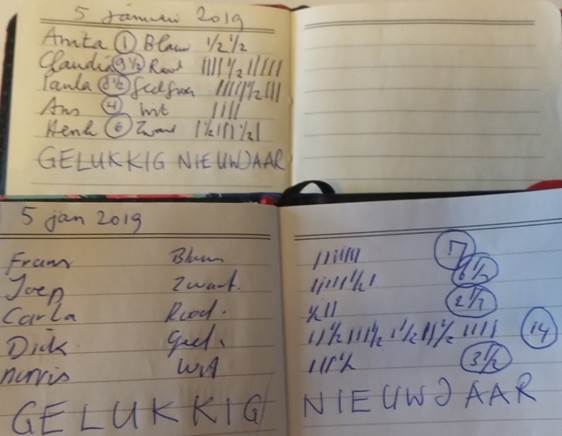 5 januari 2019
Anita ① Blauw ½ ½
Claudia 9½ Rood |||| ½ |||||
Paula 8½ Geelgroen |||||½|||
Ans ④ wit ||||
Henk ⑥ Zwart |½|||½|
GELUKKIG NIEUWJAAR
5 jan 2019
Frans Blauw ||||||| 7
Joep Zwart. 6½
Carla Rood. ½|| 2½
Dick geel. 14
Wit |||½ 3½
GELUKKIG NIEUWJAAR